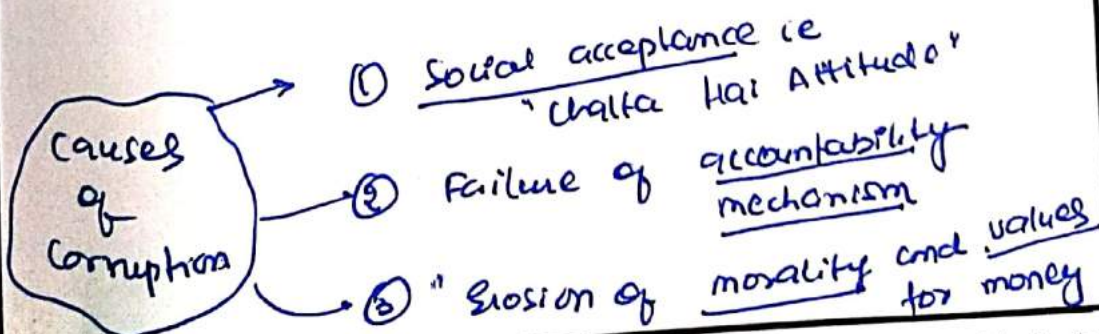 Causes
of
Corruption
① Social acceptance ie
"Chalta Hai Attitude"
② Failure of accountability
mechanism
③ "Erosion of morality and values
for money